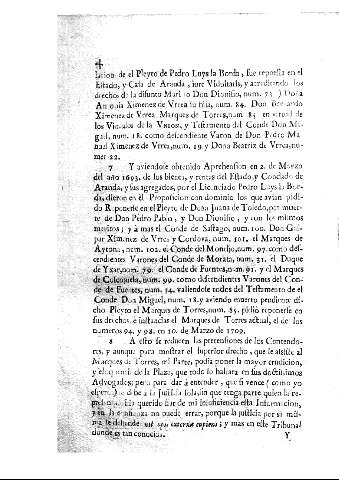 4
lacion de el Pleyto de Pedro Luys la Borda, fue repuesta en el
Estado, y Casa de Aranda, iure Viduitatis, y acreditando los
drechos de la difunto Marido Don Dionisio, num. 73. Doña
Antonia Ximenez de Vrrea su hija, num. 84. Don
Ximenez de Vrrea Marques de Torres, num. 85. en virtud de
los Vinculos de la y Testamento del Conde Don Mi-
guel, num. 18. como descendiente Varon de Don Pedro Ma-
nuel Ximenez de Vrrea, num. 19. y Doña Beatriz de Vrrea, nu-
mer. 22.
7 Y aviendose obtenido Aprehension en 2. de Marzo
del año 1693. de los bienes, y rentas del Estado, y Condado de
Aranda, y sus agregados, por el Licenciado Pedro Luys la Bor-
da, dieron en él Proposicion con dominio los que avian pidi-
do Reponerse en el Pleyto de Doña Juana de Toledo, por muer-
te de Don Pedro Pablo, y Don Dionisio, y con los mismos
meritos; y à mas el Conde de Sastago, num. 100. Don Gas-
par Ximenez de Vrrea y Cordova, num. 101. el Marques de
Aytona, num. 102. el Conde del Montijo, num. 97. como des-
cendientes Varones del Conde de Morata, num. 31. el Duque
de Yxar, num. 79. el Conde de Fuentes, num. 92. y el Marques
de Coscojuela, num. 99. como descendientes Varones del Con-
de de Fuentes, num. 14. valiendose todos del Testamento de el
Conde Don Miguel, num. 18. y aviendo muerto pendiente di-
cho Pleyto el Marques de Torres, num. 85. pidiò reponerse en
sus drechos, è instancias el Marques de Torres actual, el de los
numeros 94. y 98. en 30. de Marzo de 1709.
8 A esto se reducen las pretensiones de los Contendo-
res, y aunque para mostrar el superior drecho, que le assiste al
Marques de Torres, mi Parte, podia poner la mayor erudicion,
y eloquencia de la Plaza, que todo lo hallara en sus doctissimos
Advogados; pero para dar à entender, que si vence (como yo
espero) se debe à la Justicia sola, sin que tenga parte quien la re-
presenta, ha querido fiar de mi insuficiencia esta Informacion,
y en la confianza no puede errar, porque la justicia por si mis-
ma se defiende nec ope externa capiens; y mas en este Tribunal
donde es tan conocida.
Y